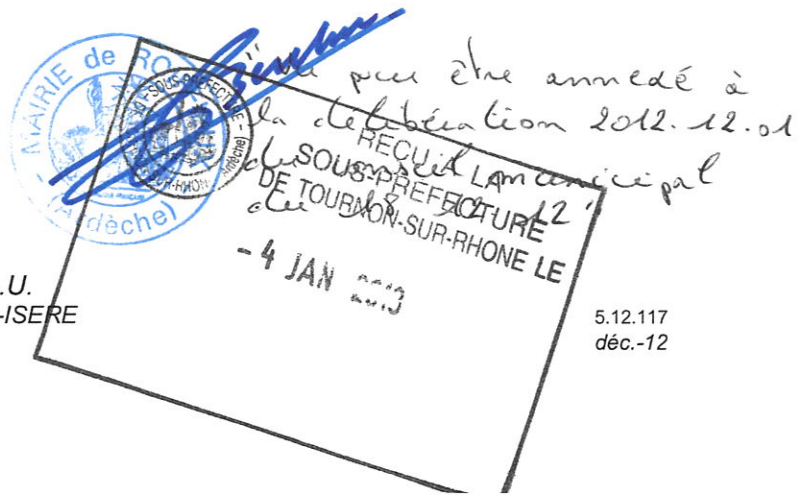 MAIRIE de RO
(Ardèche)
SOUS-PREFECTURE
SUR-RHON
(Ardèche)
pour être annexé à
la délibération 2012.12.01
du conseil municipal
du 12 12
RECU A LA
SOUS-PREFECTURE
DE TOURNON-SUR-RHONE LE
- 4 JAN 2013
.U.
-ISERE
5.12.117
déc.-12